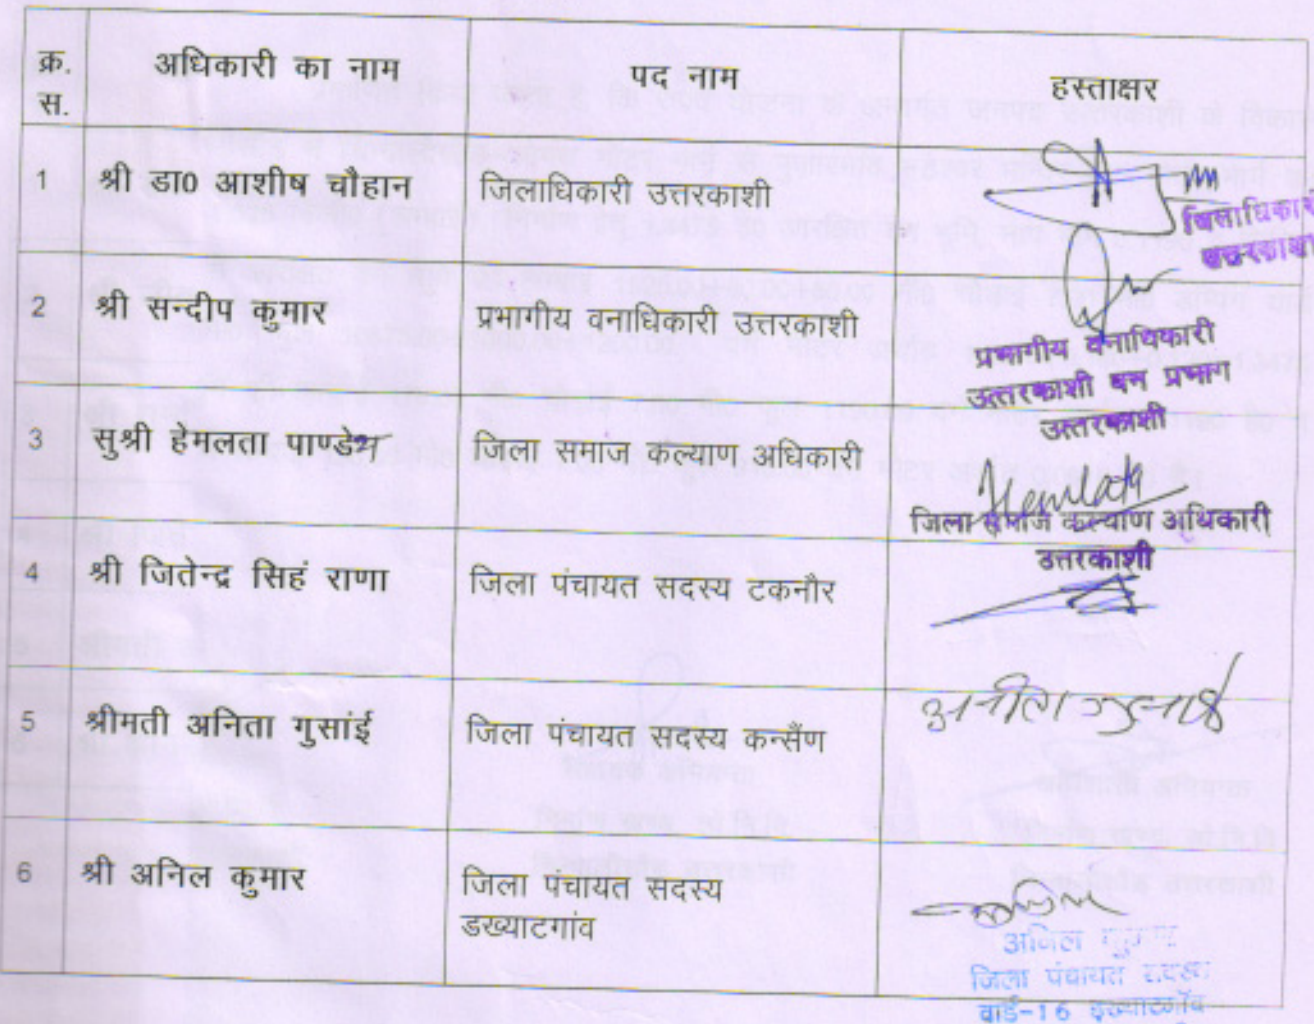 क्र. अधिकारी का नाम पद नाम हस्ताक्षर
स.
1 श्री डा0 आशीष चौहान जिलाधिकारी उत्तरकाशी
जिलाधिकारी
उत्तरकाशी
2 श्री सन्दीप कुमार प्रभागीय वनाधिकारी उत्तरकाशी
प्रभागीय वनाधिकारी
उत्तरकाशी वन प्रभाग
उत्तरकाशी
3 सुश्री हेमलता पाण्डेय जिला समाज कल्याण अधिकारी
Hemlata
जिला समाज कल्याण अधिकारी
उत्तरकाशी
4 श्री जितेन्द्र सिहं राणा जिला पंचायत सदस्य टकनौर
5 श्रीमती अनिता गुसांई जिला पंचायत सदस्य कन्सैंण
6 श्री अनिल कुमार जिला पंचायत सदस्य
डख्याटगांव
अनिल कुमार
जिला पंचायत सदस्य
वार्ड-16 डख्याटगाँव